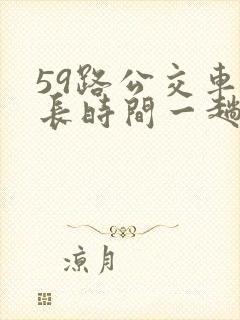 59路公交車
長時間一趟
凉月